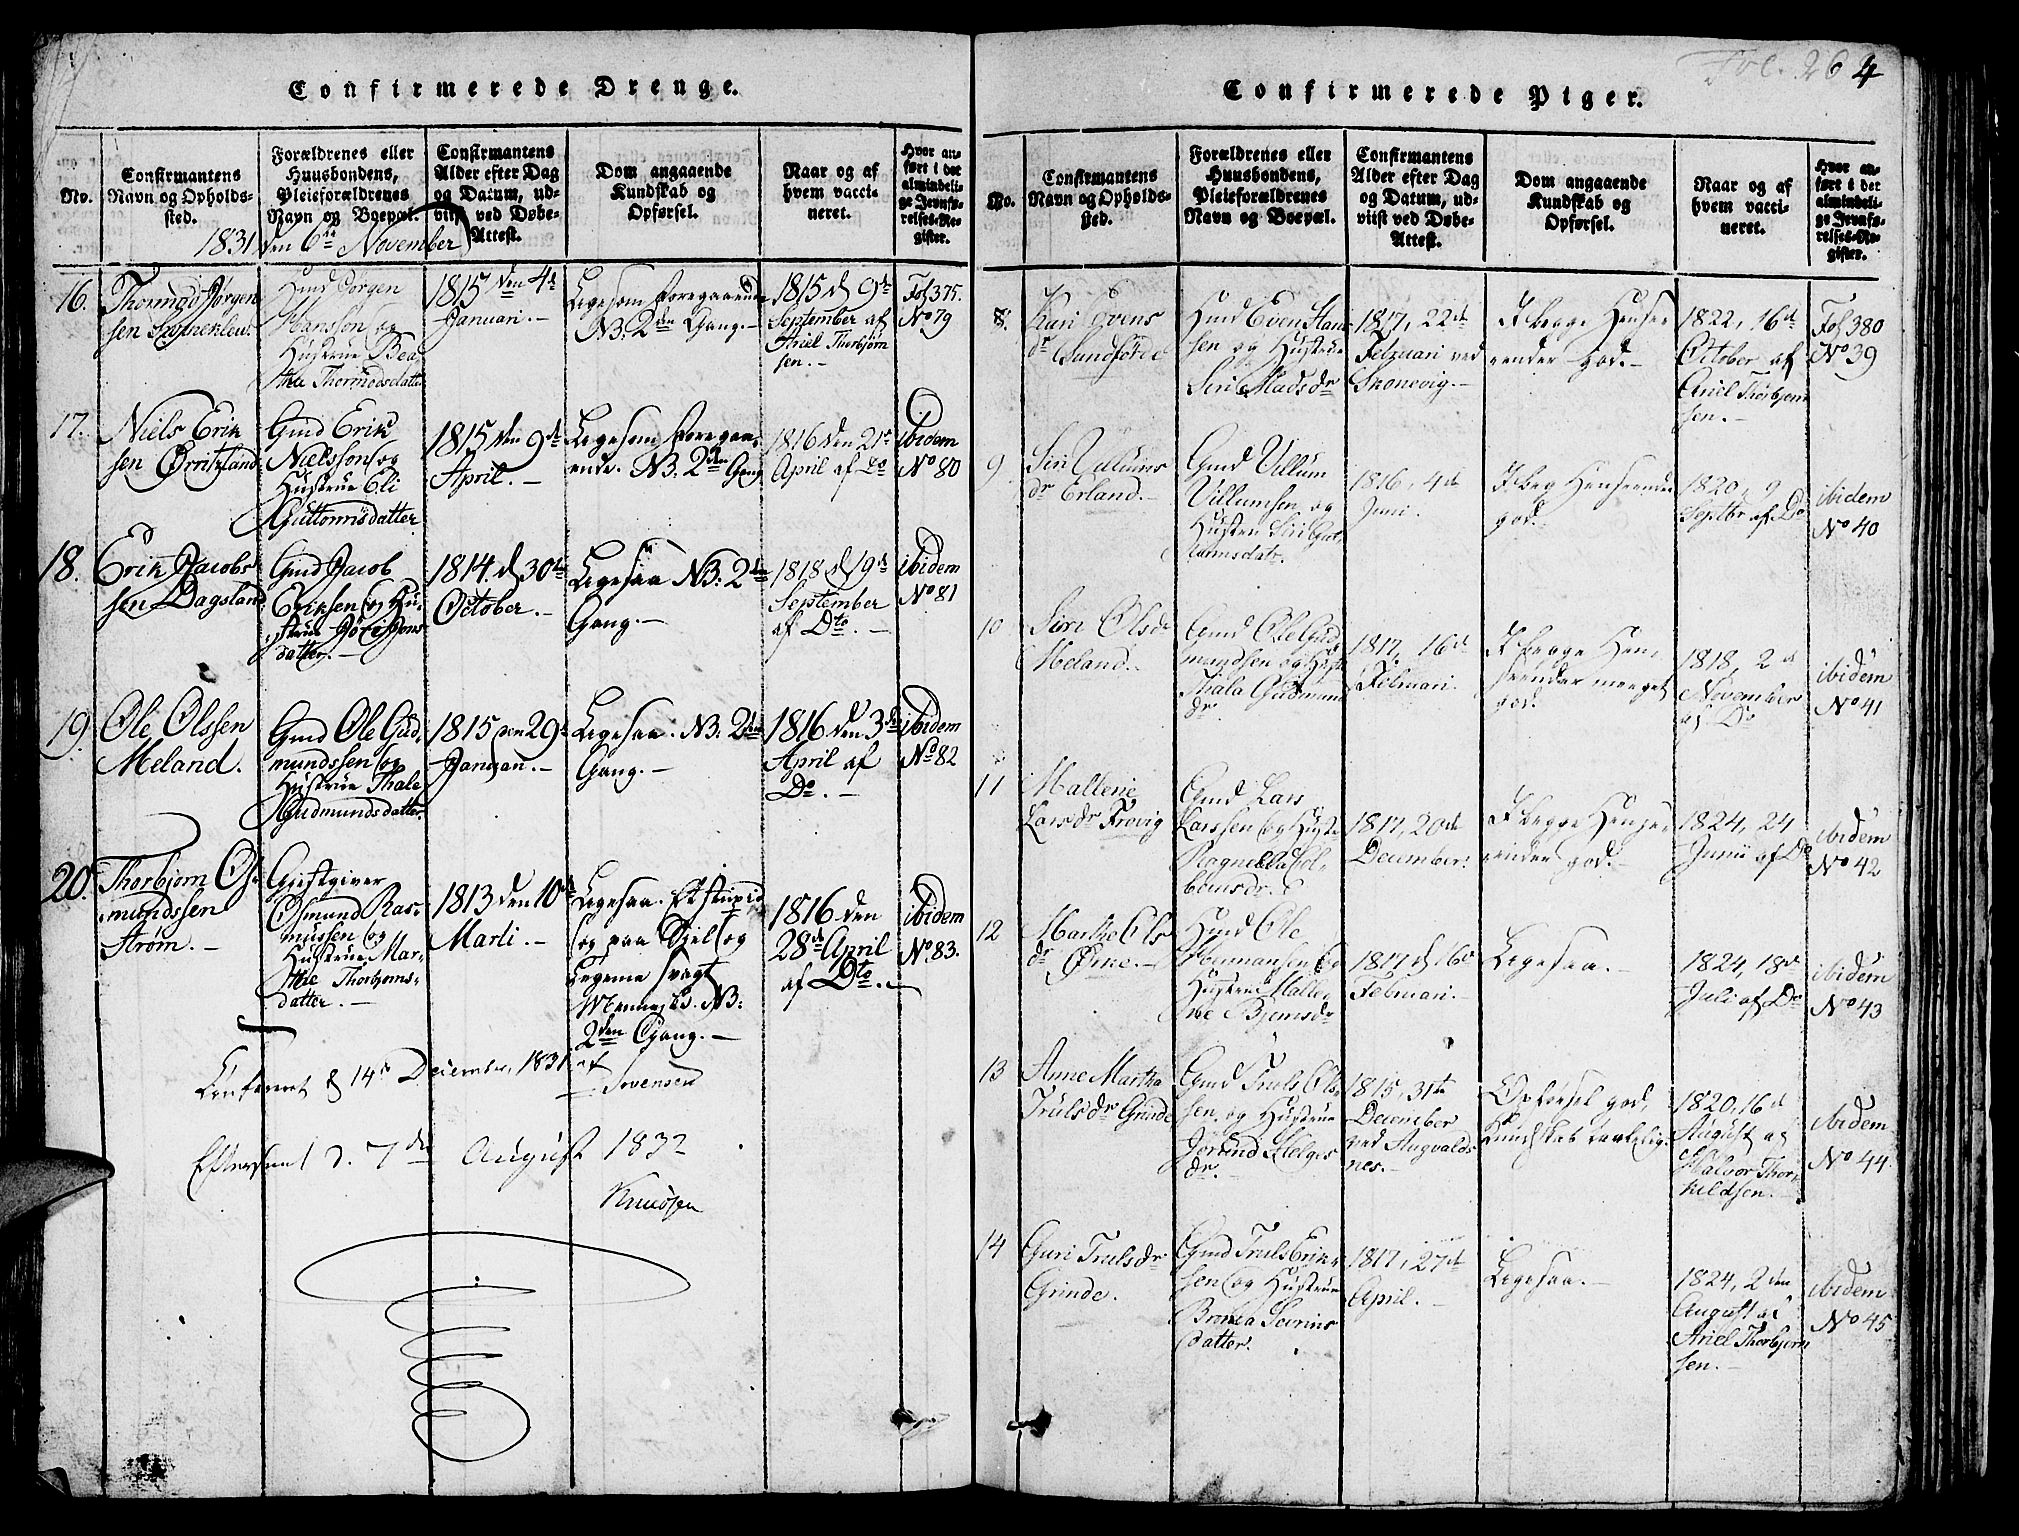 Confirmerede Drenge.
No.
Confirmantens
Navn og Opholds-
sted.
Forældrenes eller
Huusbondens,
Pleieforældrenes
Navn og Boepæl.
Confirmantens
Alder efter Dag
og Datum, ud-
viist ved Døbe-
Attest.
Dom angaaende
Kundskab og
Opførsel.
Naar og af
hvem vacci-
neret.
Hvor an-
ført i det
almindeli-
ge Jevnfø-
relses-Re-
gister.
1831 den 6te November
16.
Thormod Jørgen
sen
Gmd Jørgen
Hanssøn og
Hustrue Bea
the Thormodsdatter
1815 den 4de
Januari. -
Ligesom Foregaaende
NB. 2den Gang. -
1815 d 9de
September af
Ariel Thorbjørn
sen. -
Fol 375.
No 79
17.
Niels Erik
sen Ørritzland
Gmd Erik
Nielssøn og
Hustrue Eli
Guttormsdatter
1815 den 9de
April. -
Ligesom Foregaa-
ende. NB. 2den Gang
1816 den 21de
April af Do
ibidem
No 80
18.
Erik Jacobs
sen Dagsland
Gmd Jacob
Eriksen og Hu-
strue Jøri Jons
datter. -
1814. d 30te
October. -
Ligesaa NB: 2den
Gang. -
1818 d 19de
September
af Dto. -
ibidem
No 81
19.
Ole Olssen
Meland.
Gmd Ole Gud-
mundssen og
Hustrue Thale
Gudmundsdatter.
1815 den 29de
Januari. -
Ligesaa. NB: 2den
Gang. -
1816 den 3die
April af
Do. -
ibidem
No 82
20.
Thorbjørn Os-
mundssen
Strøm. -
Gjestgiver
Osmund Ras-
mussen og
Hustrue Mar-
the Thorbjørns-
datter. -
1813 den 10de
Marti. -
Ligesaa. Et stupid
og paa Sjel og
Legeme svagt
Menneske. NB:
2den Gang. -
1816 den
28de April
af Dto. -
ibidem
No. 83.
Confereret d 14de December 1831 af
Sørensen
Efterseet d. 7de August 1832
Knudsen
Fol. 264
Confirmerede Piger.
No.
Confirmantens
Navn og Opholds-
sted.
Forældrenes eller
Huusbondens,
Pleieforældrenes
Navn og Boepæl.
Confirmantens
Alder efter Dag
og Datum, ud-
viist ved Døbe-
Attest.
Dom angaaende
Kundskab og
Opførsel.
Naar og af
hvem vacci-
neret.
Hvor an-
ført i det
almindeli-
ge Jevnfø-
relses-Re-
gister.
8.
Kari Evens
dr Sundførde
Huusmd Even Han-
sen og Hustrue
Siri Madsdr
1817, 22de
Februari ved
Skonevig. -
I begge Hensee
ender god. -
1822, 16de
October af
Ariel Thorbjørn
sen. -
Fol 380
No 39
9
Siri Villums
dr Erland. -
Gmd Villum
Villumsen og
Hustru Siri Gut
tormsdatr.
1816, 4de
Juni.
I beg Henseender
god. -
1820, 9
Septbr af Do
ibidem
No 40
10
Siri Olsdr
Meland. -
Gmd Ole Gud
mundsen og Hust
Thala Gudmund
dr.
1817, 16de
Februari.
I begge Hen-
seender meeget
god.
1818, 2de
November
af Do
ibidem
No 41
11
Mallene
Larsdr Frøvig
Gmd Lars
Larssen og Hust
Ragnella Kol-
bensdr.
1817, 20de
December.
I begge Hensee
ender god. -
1824, 24
Junii af Do
ibidem
No 42
12
Marthe Ols
dr Ørke. -
Huusmd Ole
Hermansen og
Hustrue Malle
ne Bjørnsdr
1817 d 16de
Februari. -
Ligesaa. -
1824, 18de
Juli af Do
ibidem
No 43
13
Anne Martha
Trulsdr Grinde
Gmd Truls Ols
sen og Hustrue
Jorand Helges
dr. -
1815, 31te
December
ved Augvalds
nes. -
Opførsel god,
Kundskab taalelig.
1820, 16de
August af
Halvor Thor-
kildsen. -
ibidem
No 44.
14
Guri Trulsdr
Grinde.
Gmd Truls Erik-
sen og Hustrue
Bronla Sevrins
datter.
1817, 27de
April. -
Ligesaa. -
1824, 2den
August af
Ariel Thorbjørn
sen. -
ibidem
No 45